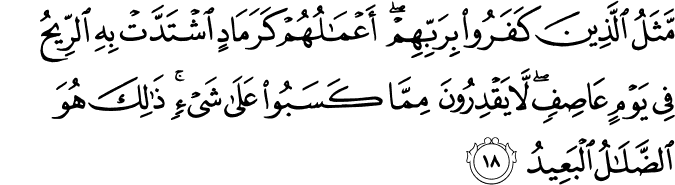 مَّثَلُ ٱلَّذِينَ كَفَرُوا۟ بِرَبِّهِمْ ۖ أَعْمَـٰلُهُمْ كَرَمَادٍ ٱشْتَدَّتْ بِهِ ٱلرِّيحُ
فِى يَوْمٍ عَاصِفٍ ۖ لَّا يَقْدِرُونَ مِمَّا كَسَبُوا۟ عَلَىٰ شَىْءٍ ۚ ذَٰلِكَ هُوَ
ٱلضَّلَـٰلُ ٱلْبَعِيدُ ١٨